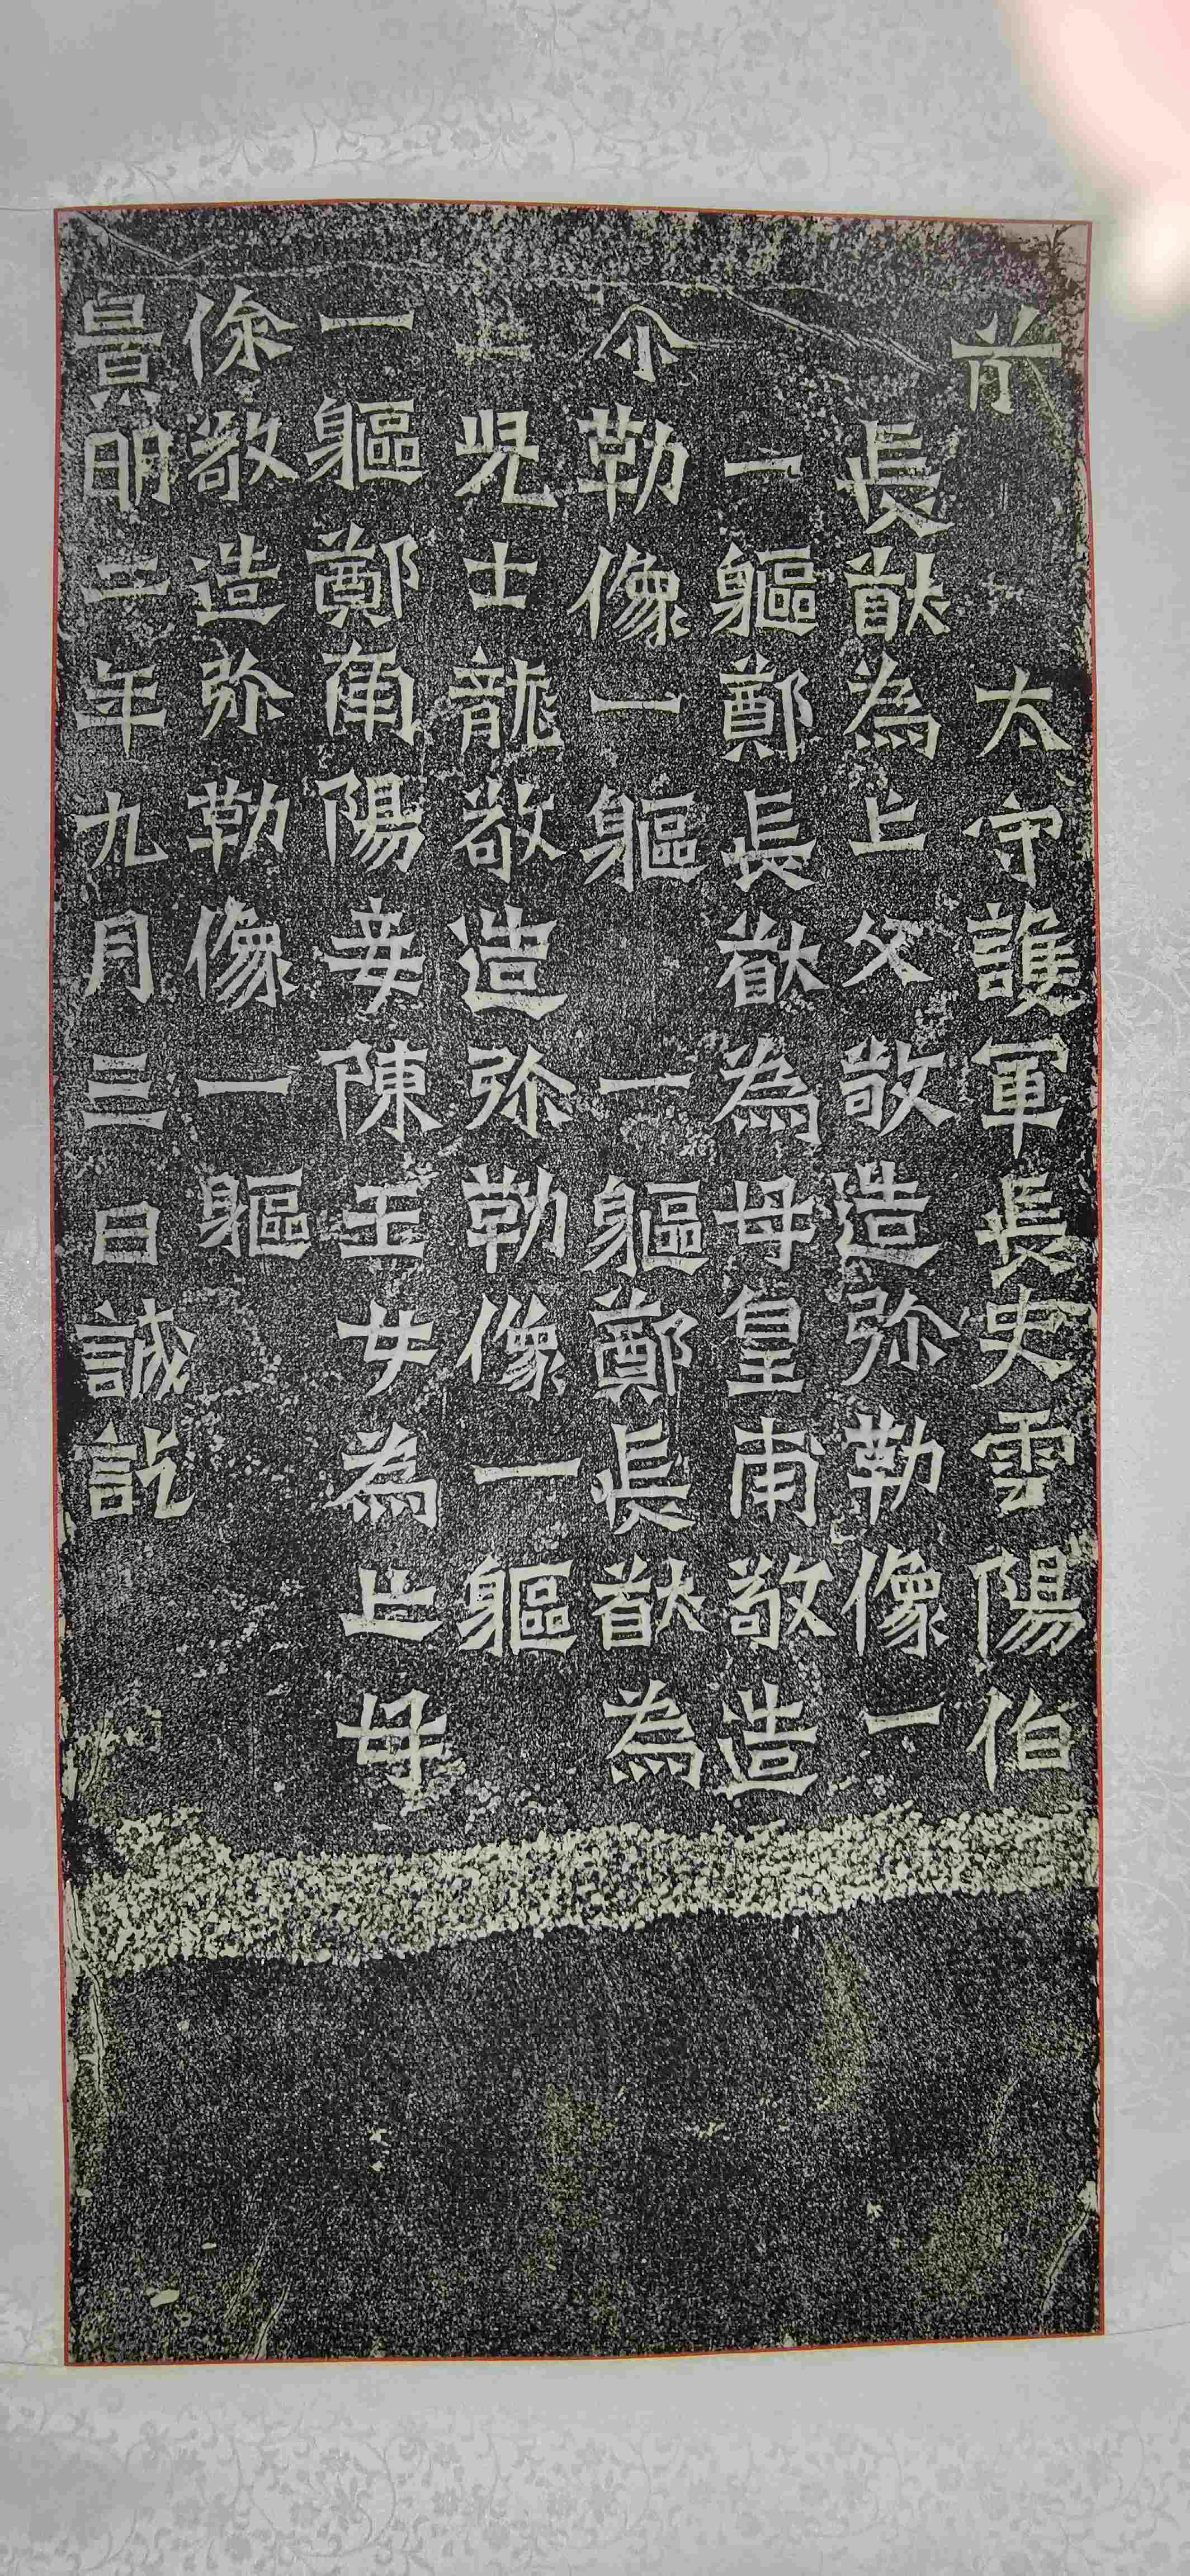 前 太守護軍長史雲陽伯
長猷為亡父敬造弥勒像一
一軀鄭長猷為母皇甫敬造
尒勒像一軀 一軀鄭長猷為
亡兒士龍敬造弥勒像一軀
一軀鄭南陽妾陳玉女為亡母
徐敬造弥勒像一軀
景明二年九月三日誡訖